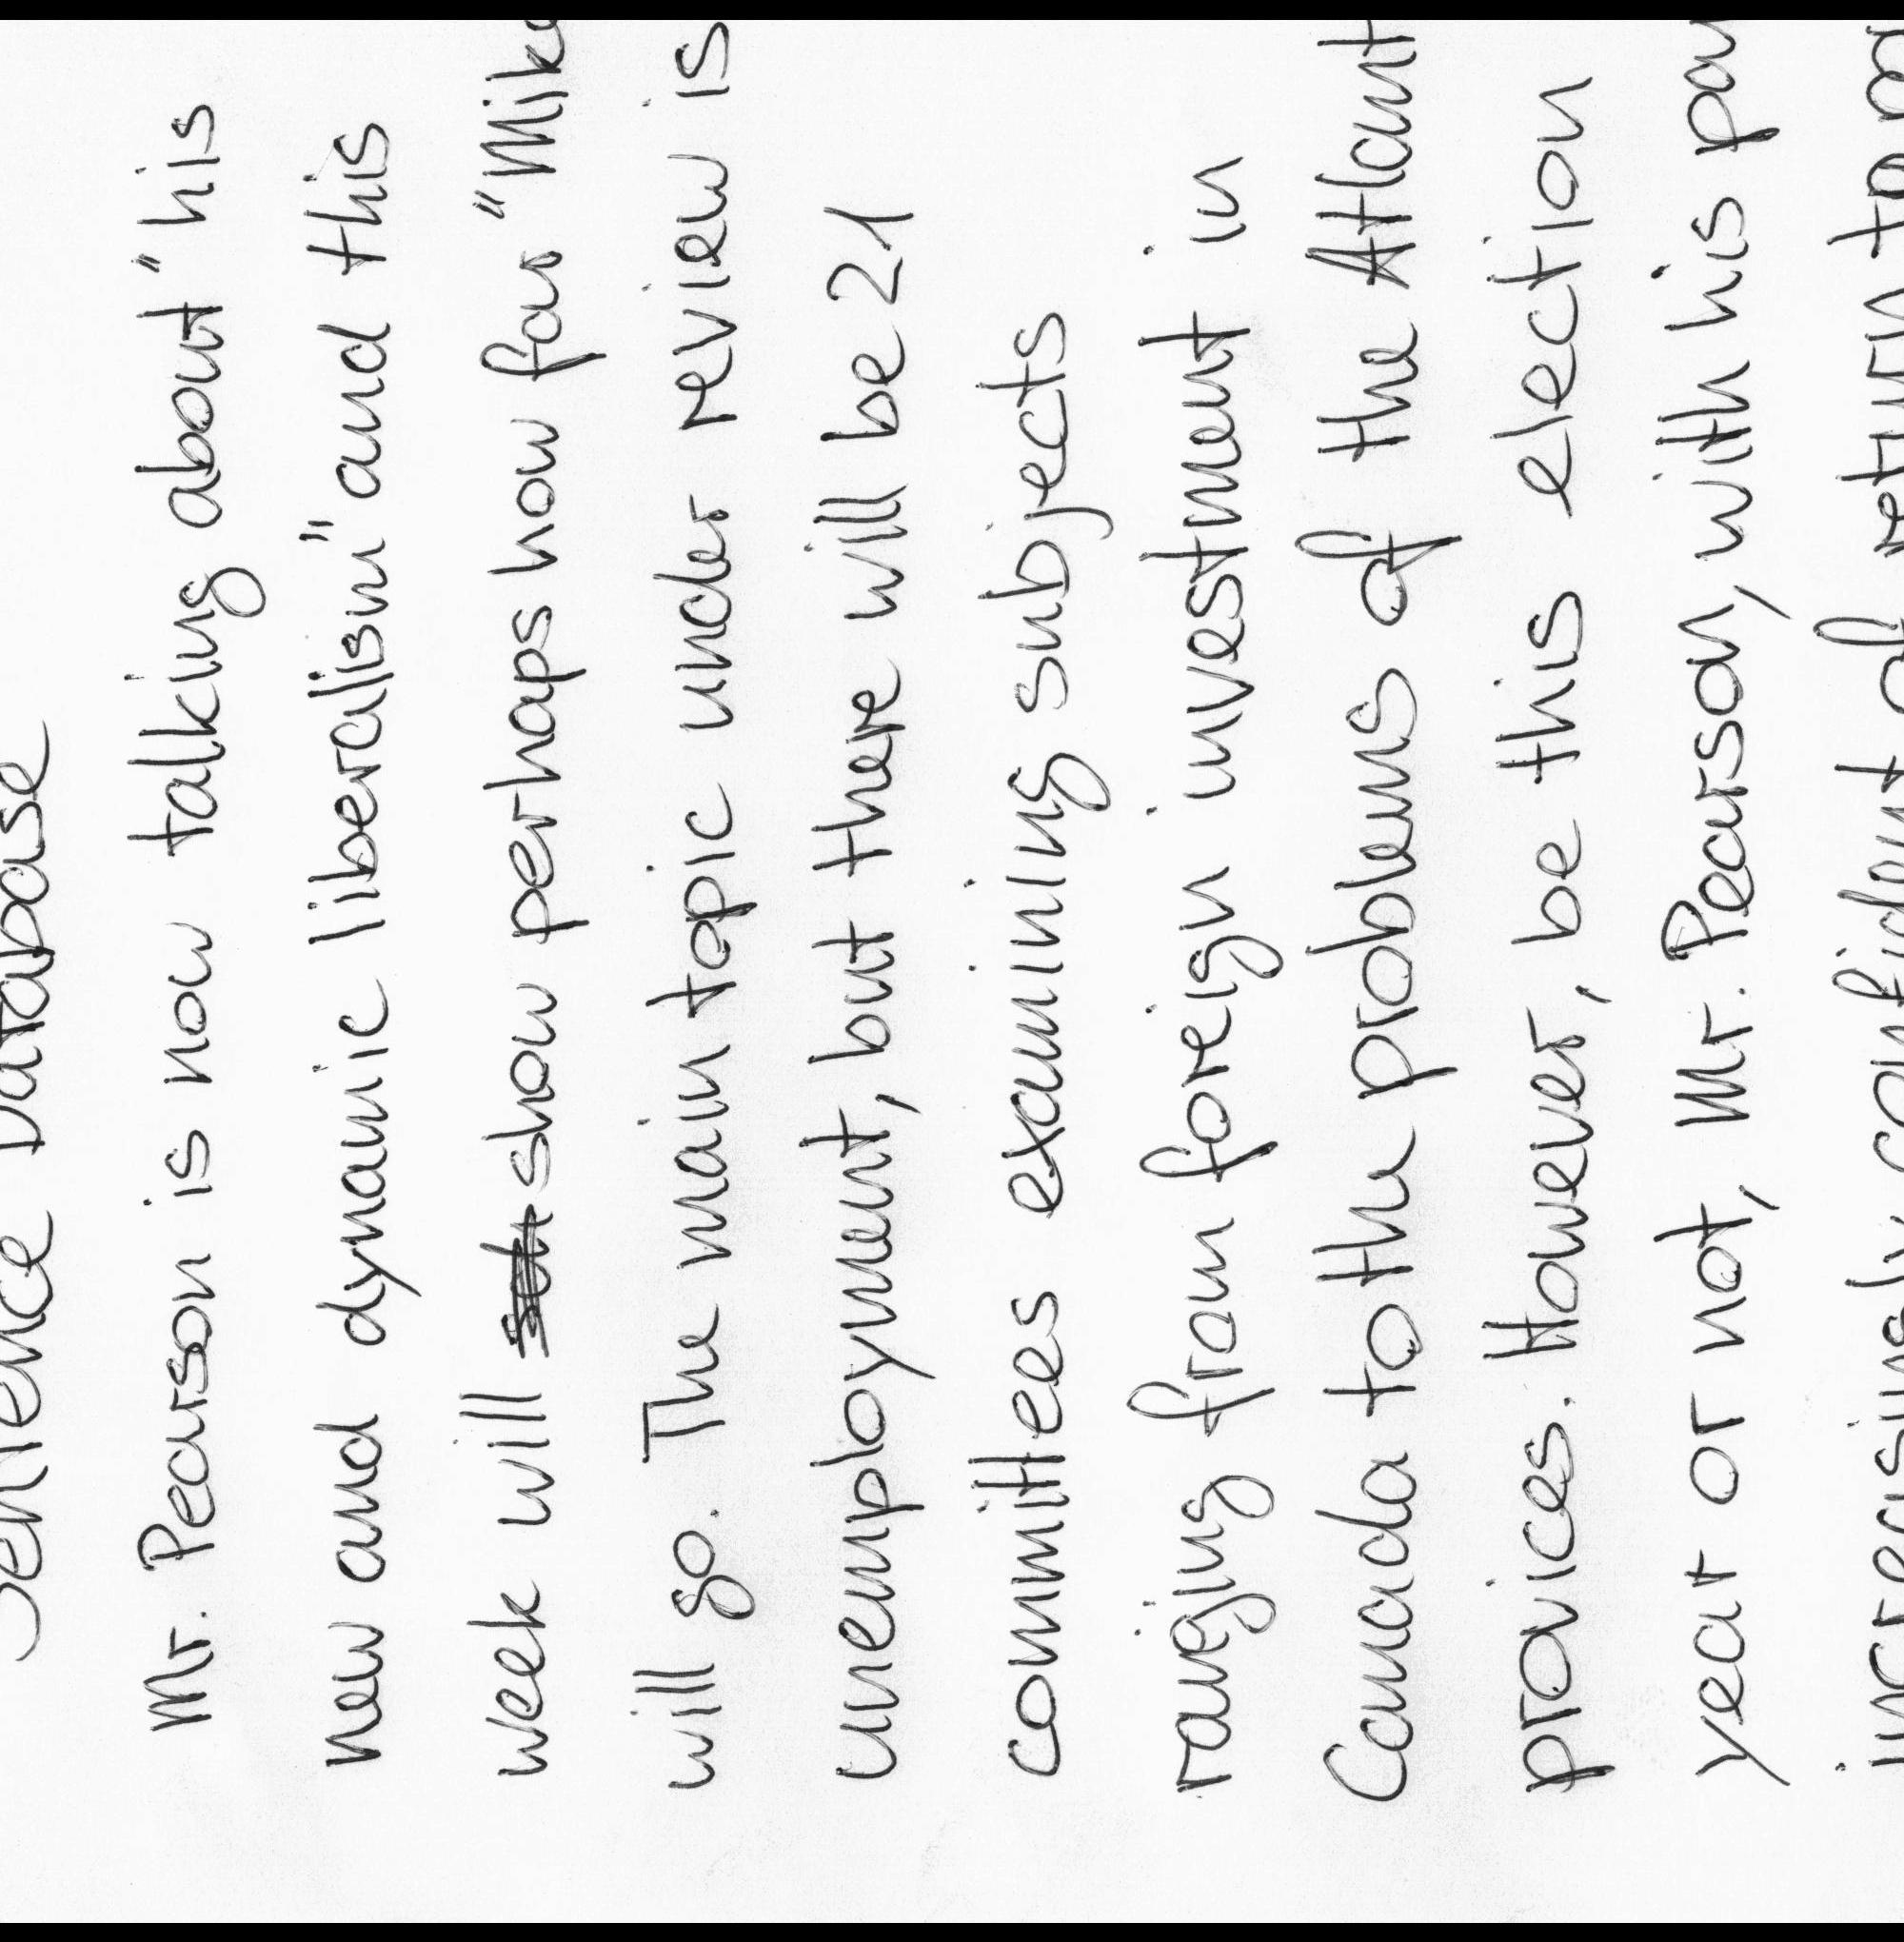 Sentence Database
Mr. Pearson is now talking about "his
new and dynamic liberalism" and this
week will show perhaps how far "Mike
will go. The main topic under review is
unemployment, but there will be 21
committees examining subjects
ranging from foreign investment in
Canada to the problems of the Atlant
provices. However, be this election
year or not, Mr. Pearson, with his par
increasingly confident of return to po